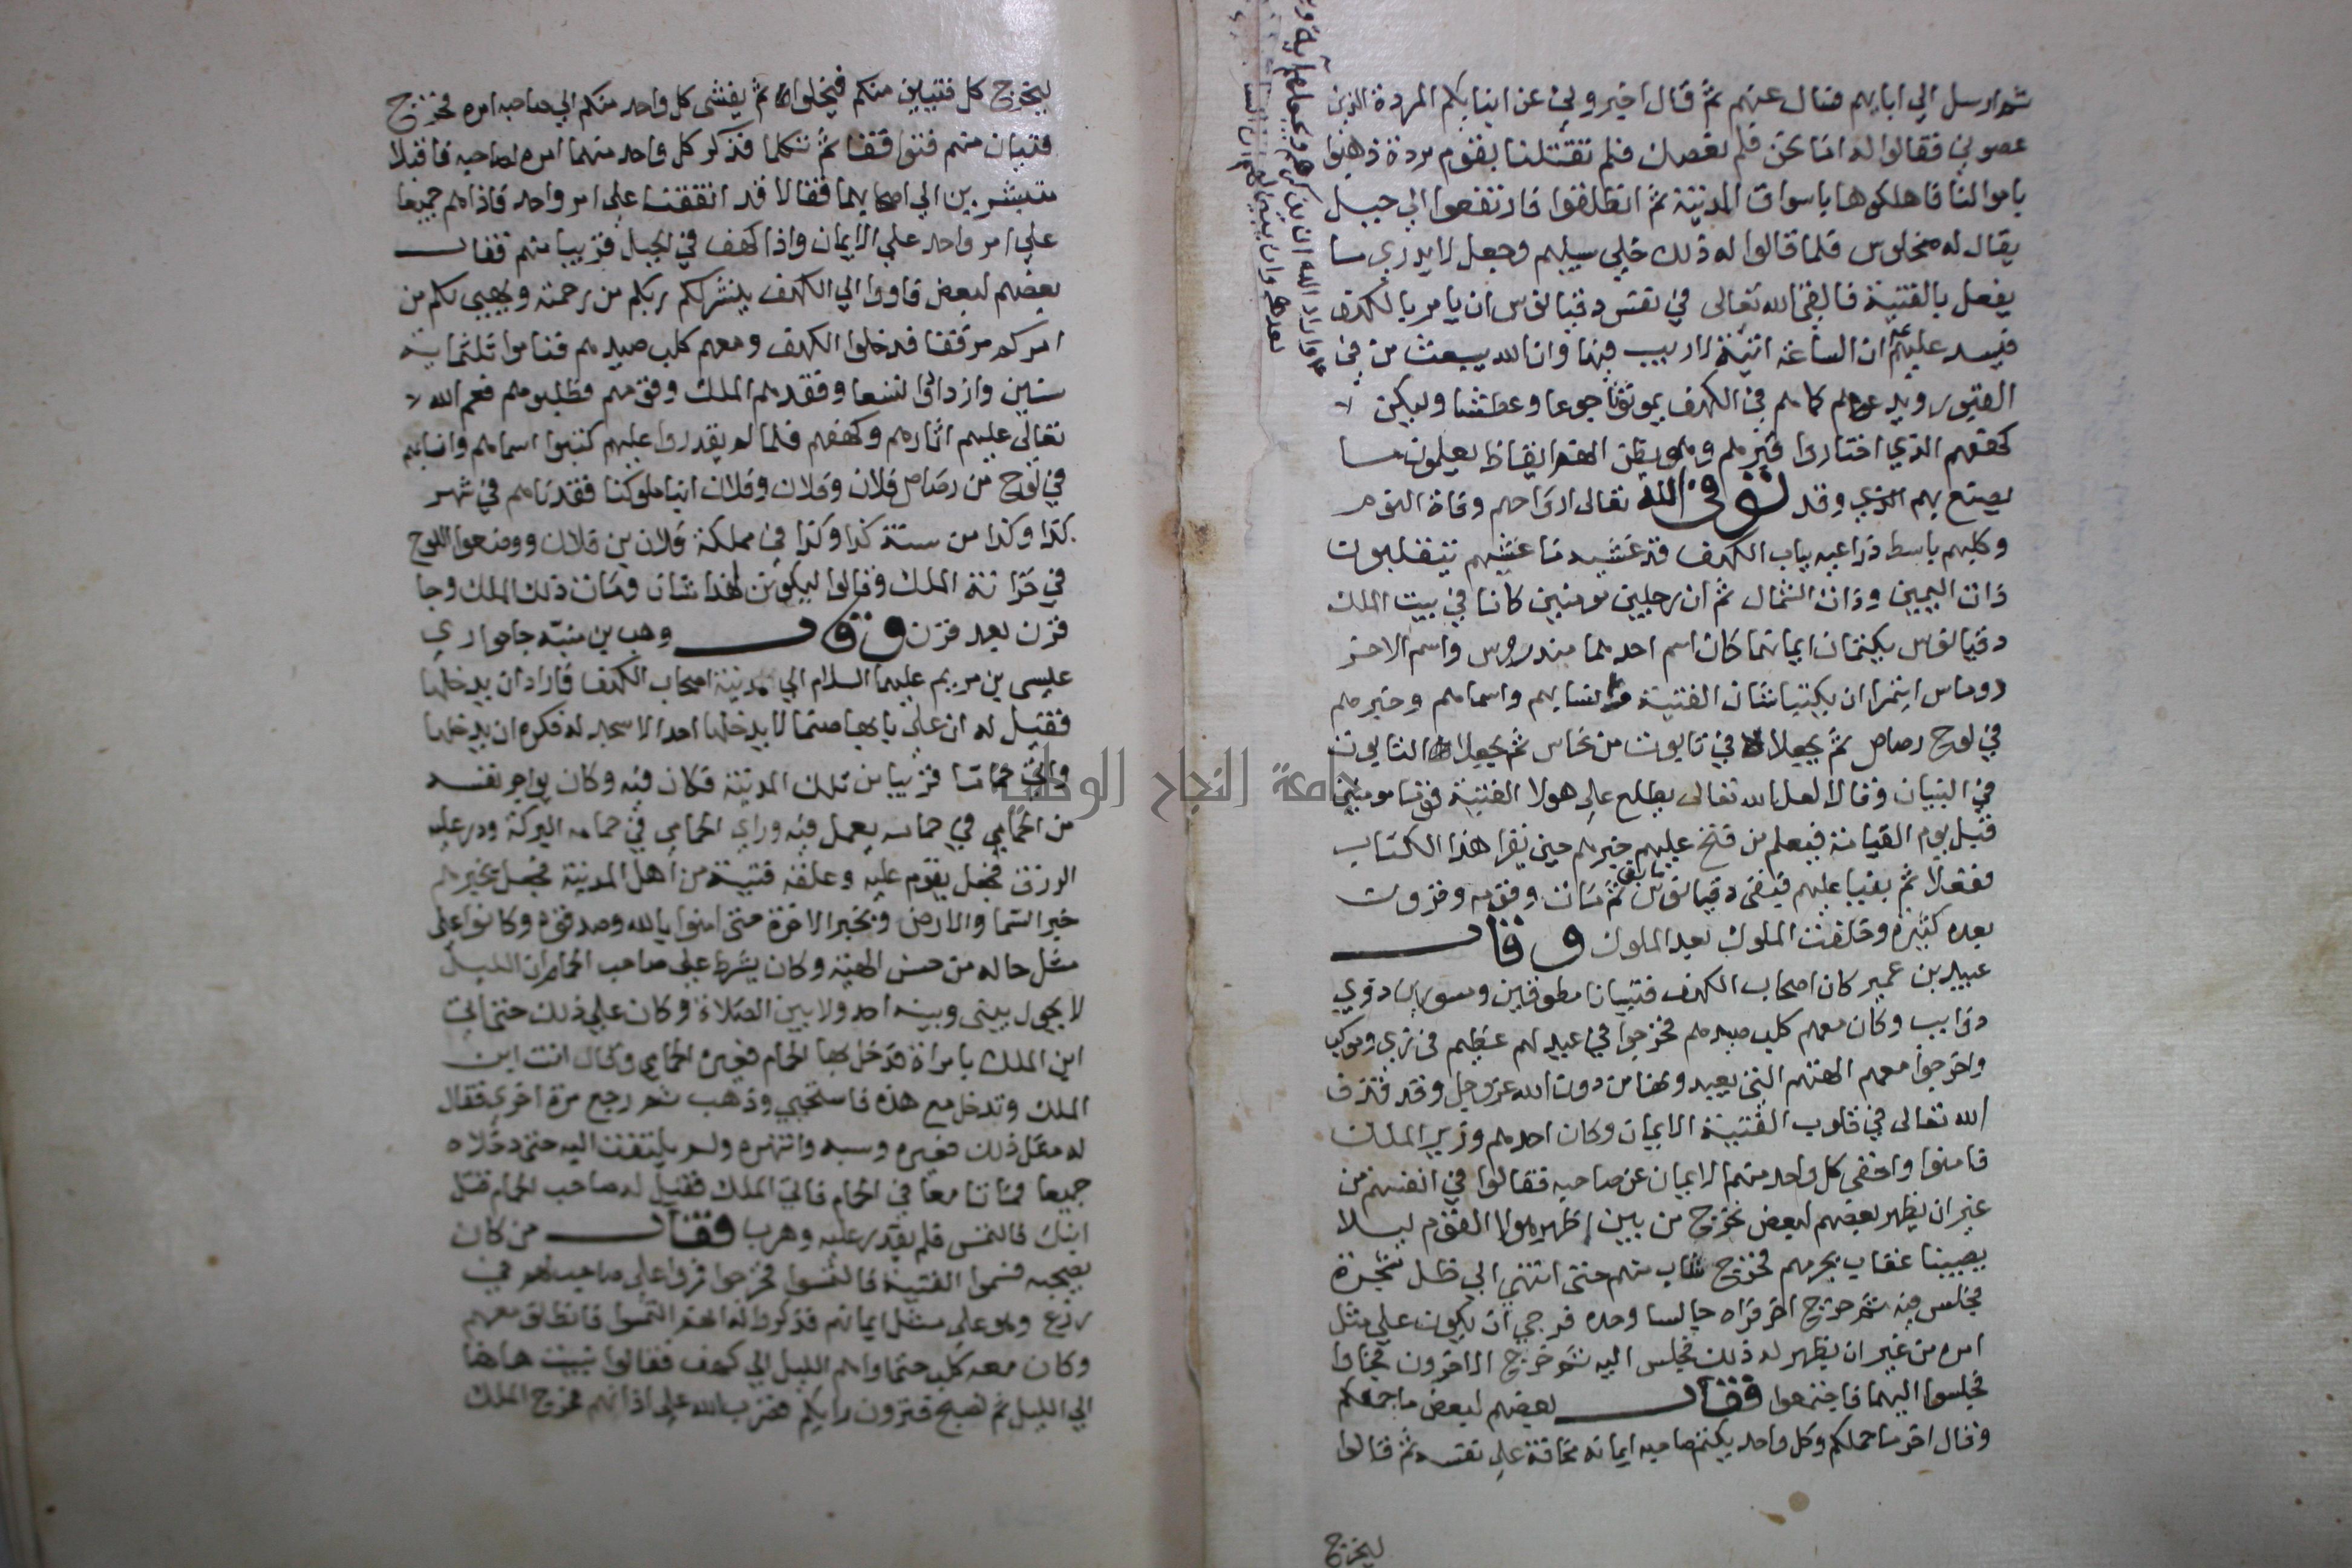 ثم ارسل الي ابايهم فسال عنهم ثم قال اخبروني عن ابنايكم المردة الذين
عصوني فقالوا له اما نحن فلم نعصك فلم تقتلنا بقوم مردة ذهبوا
باموالنا فاهلكوها باسواق المدينة ثم انطلقوا فارتفعوا الي جبل
يقال له منحلوس فلما قالوا له ذلك خلي سبيلهم وجعل لا يدري ما
يفعل بالفتية فالقي الله تعالى في نفس دقيانوس ان يامر بالكهف
فيسد عليهم
ان الساعة اتية لا ريب فيها وان الله يبعث من في
وما اراد الله ان يكرمهم ويجعلهم آية
القبور ويدعوهم كما هم في الكهف يموتوا جوعا وعطشا وليكن
كهفهم الذي اختاروا قبرهم وهو يظن انهم ايقاظ يعلمون ما
يصنع بهم وقد توفى الله تعالى ارواحهم وفاة النوم
وكلبهم باسط ذراعيه بباب الكهف قد غشيه ما غشيهم يتقلبون
ذات اليمين وذات الشمال ثم ان رجلين مومنين كانا في بيت الملك
دقيانوس يكتمان ايمانهما كان اسم احدهما بندروس واسم الاخر
روناس ايتمرا ان يكتبا شان الفتية وانسابهم واسماهم وخبرهم
في لوح رصاص ثم يجعلاه في تابوت من نحاس ثم يجعلا التابوت
في البنيان وقالا لعل الله تعالى يطلع على هولا الفتية قوما مومنين
قبل يوم القيامة فيعلم من فتح عليهم خبرهم حين يقرا هذا الكتاب
ففعلا ثم بنيا عليهم فبقي دقيانوس ما بقي ثم مات وقومه وقرون
بعده كثيرة وخلفت الملوك بعد الملوك وقال
عبيد بن عمير كان اصحاب الكهف فتيانا مطوقين مسورين ذوي
ذوايب وكان معهم كلب صيدهم فخرجوا في عيد لهم عظيم في زي وموكب
واخرجوا معهم الهتهم التي يعبدونها من دون الله عز وجل وقد قذف
الله تعالى في قلوب الفتية الايمان وكان احدهم وزير الملك
فامنوا واخفى كل واحد منهم الايمان عن صاحبه فقالوا في انفسهم من
غير ان يظهر بعضهم لبعض نخرج من بين اظهر هولا القوم ليلا
يصيبنا عقاب بجرمهم فخرج شاب منهم حتى انتهي الي ظل شجرة
فجلس فيه ثم خرج اخر فراه جالسا وحده فرجي ان يكون علي مثل
امره من غير ان يظهر له ذلك فجلس اليه ثم خرج الاخرون فجاوا
فجلسوا اليهما فاجتمعوا فقال بعضهم لبعض ما جمعكم
وقال اخر ما جملكم وكل واحد يكتم صاحبه ايمانه مخافة على نفسه ثم قالوا
ليخرج
ليخرج كل فتيان منكم فيخلوا ثم يفشي كل واحد منكم الي صاحبه امره فخرج
فتيان منهم فتواقفا ثم تكلما فذكر كل واحد منهما امره لصاحبه فاقبلا
مستبشرين الي اصحابهما فقالا قد اتفقنا علي امر واحد فاذا هم جميعا
علي امر واحد علي الايمان واذا كهف في الجبل قريبا منهم فقال
بعضهم لبعض فاووا الي الكهف ينشر لكم ربكم من رحمته ويهيي لكم من
امركم مرفقا فدخلوا الكهف ومعهم كلب صيدهم فناموا ثلثماية
سنين وازدادوا تسعا وفقدهم الملك وقومهم فطلبوهم فعم الله
تعالى عليهم اثارهم وكهفهم فلما لم يقدروا عليهم كتبوا اسماهم وانسابهم
في لوح من رصاص فلان وفلان وفلان ابنا ملوكنا فقدناهم في شهر
كذا وكذا من سنة كذا وكذا في مملكة فلان بن فلان ووضعوا اللوح
في خزانة الملك وقالوا ليكونن لهذا شان ومات ذلك الملك وجا
قرن بعد قرن وقال وهب بن منبه جا حواري
عيسى بن مريم عليهما السلام الي مدينة اصحاب الكهف فاراد ان يدخلها
فقيل له ان علي بابها صنما لا يدخلها احد الا سجد له فكره ان يدخلها
واتي حماما قريبا من تلك المدينة فكان فيه وكان يواجر نفسه
من الحمامي في حمامه يعمل فيه وراي الحمامي في حمامه البركة ودر عليه
الرزق فجعل يقوم عليه وعلقه فتية من اهل المدينة فجعل يخبرهم
خبر السما والارض وبخبر الاخرة حتى امنوا بالله وصدقوه وكانوا على
مثل حاله من حسن الهيئة وكان يشرط علي صاحب الحمام ان الليل
لا يحول بيني وبينه احد ولا بين الصلاة وكان علي ذلك حتى اتي
ابن الملك بامراة فدخل بها الحمام فعيره الحمامي وقال انت ابن
الملك وتدخل مع هذه فاستحيي وذهب ثم رجع مرة اخري فقال
له مثل ذلك فعيره وسبه وانتهره ولم يلتفت اليه حتى دخلاه
جميعا فماتا معا في الحمام فاتي الملك فقيل له صاحب الحمام قتل
ابنك فالتمس فلم يقدر عليه وهرب فقال من كان
يصحبه فسموا الفتية فالتمسوا فخرجوا فمروا على صاحب لهم في
زرع وهو على مثل ايمانهم فذكروا له انهم التمسوا فانطلق معهم
وكان معه كلب حتى اواهم الليل الي كهف فقالوا نبيت هاهنا
الي الليل ثم نصبح فترون رايكم فضرب الله على اذانهم فخرج الملك
جامعة النجاح الوطنية